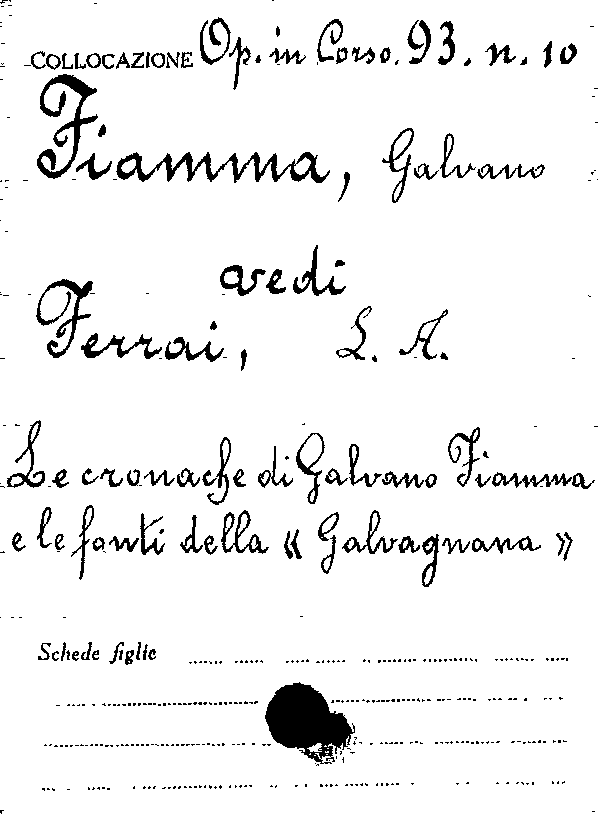 COLLOCAZIONE Op. in Corso. 93. n. 10
Fiamma, Galvano
vedi
Ferrai, L. A.
Le cronache di Galvano Fiamma
e le fonti della « Galvagnana »
Schede figlie